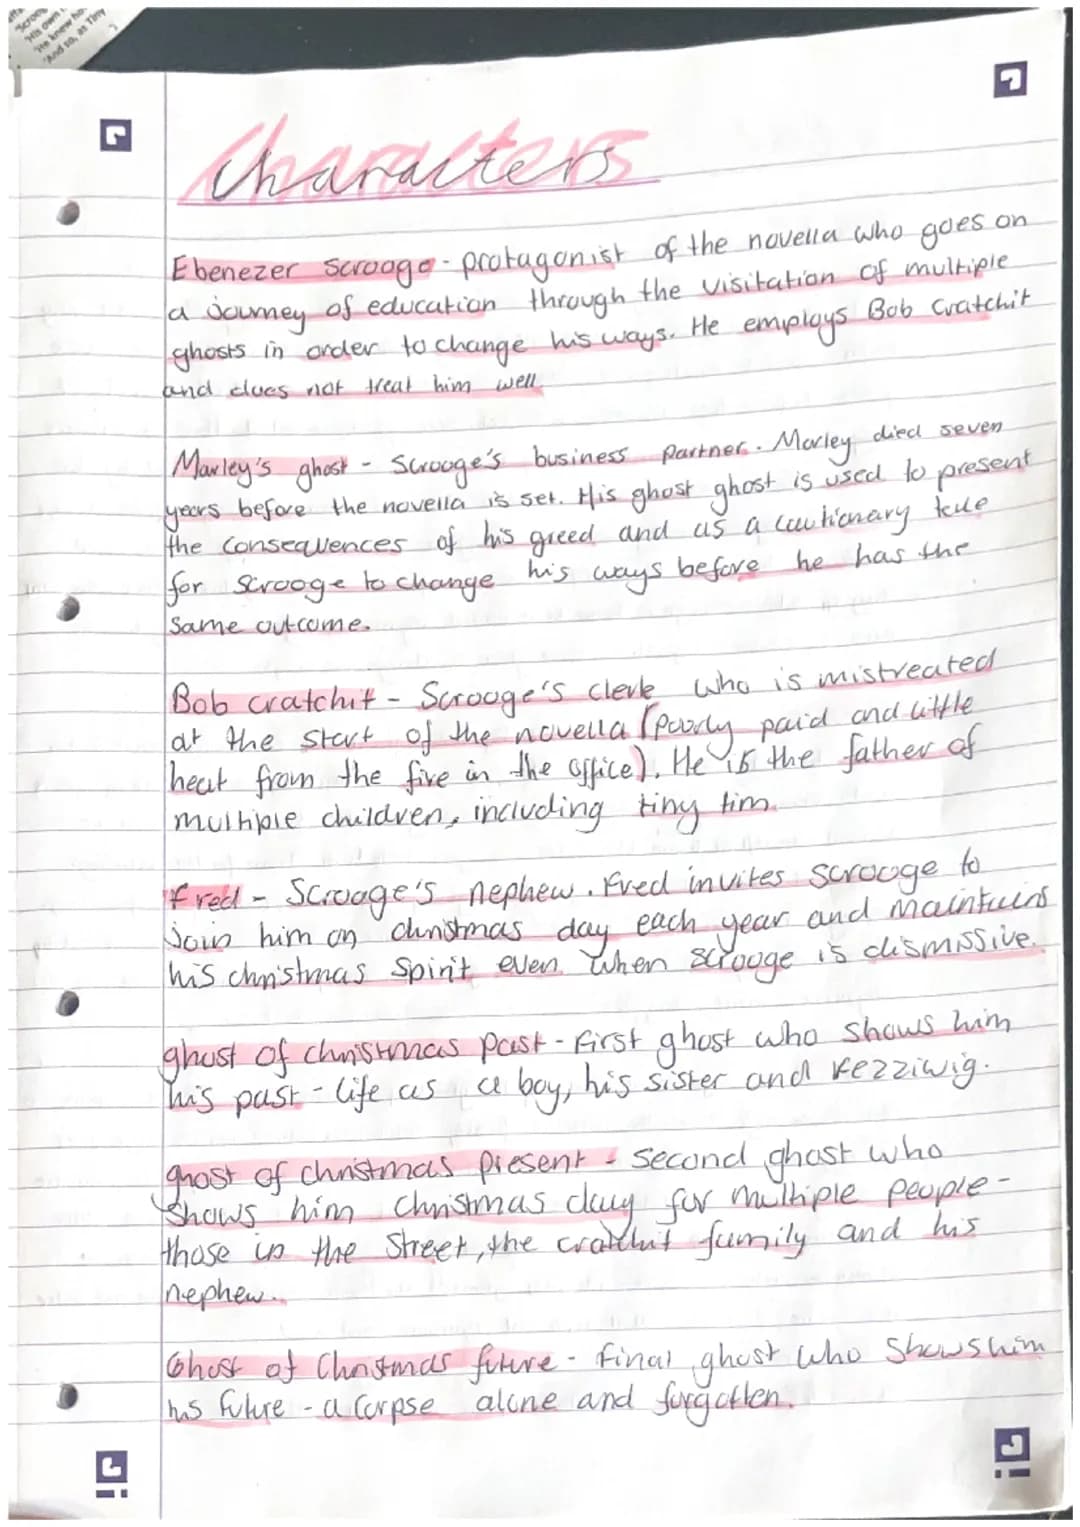 "Scroo
"His own
"He knew ho
"And so, as Tiny
Characters
Ebenezer Scrooge - protagonist of the novella who goes on
a journey of education through the visitation of multiple
ghosts in order to change his ways. He employs Bob Cratchit
and does not treat him well
Marley's ghost - Scrooge's business partner. Marley died seven
years before the novella is set. His ghost ghost is used to present
the consequences of his greed and as a cautionary tale
for Scrooge to change his ways before he has the
same outcome.
Bob cratchit - Scrooge's clerk who is mistreated
at the start of the novella (poorly paid and little
heat from the fire in the office). He is the father of
multiple children, including tiny tim.
Fred - Scrooge's nephew. Fred invites scrooge to
join him on christmas day each year and maintains
his christmas spirit even when scrooge is dismissive.
ghost of christmas past - first ghost who shows him
his past - life as a boy, his sister and Fezziwig.
ghost of christmas present - second ghost who
shows him Christmas day for multiple people -
those in the street, the cratchit family and his
nephew.
Ghost of Christmas future - final ghost who shows him
his future - a corpse alone and forgotten.